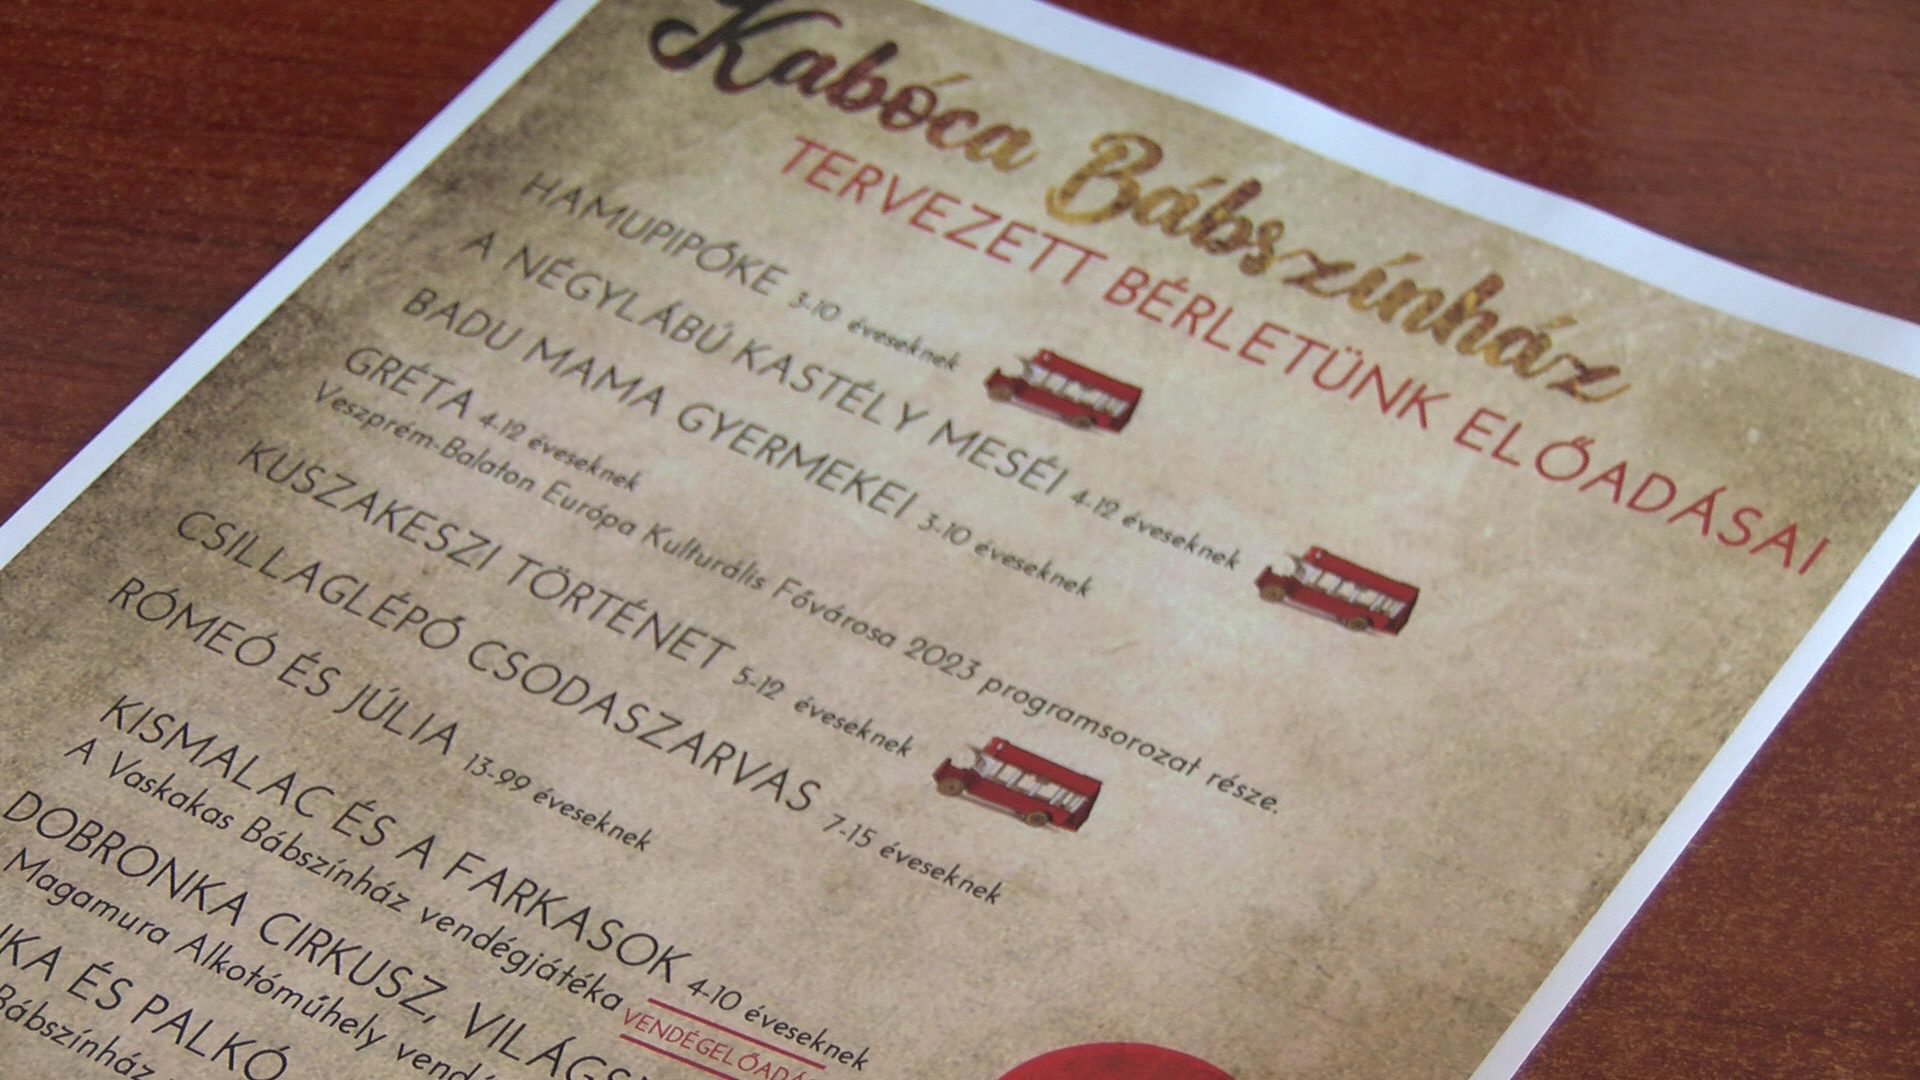 Kabóca Bábszínház
TERVEZETT BÉRLETÜNK ELŐADÁSAI
HAMUPIPŐKE 3-10 éveseknek
A NÉGYLÁBÚ KASTÉLY MESÉI 4-12 éveseknek
BADU MAMA GYERMEKEI 3-10 éveseknek
GRÉTA 4-12 éveseknek
Veszprém-Balaton Európa Kulturális Fővárosa 2023 programsorozat része.
KUSZAKESZI TÖRTÉNET 5-12 éveseknek
CSILLAGLÉPŐ CSODASZARVAS 7-15 éveseknek
RÓMEÓ ÉS JÚLIA 13-99 éveseknek
KISMALAC ÉS A FARKASOK 4-10 éveseknek
A Vaskakas Bábszínház vendégjátéka
DOBRONKA CIRKUSZ,
Magamura Alkotóműhely
ÉS PALKÓ
Bábszínház